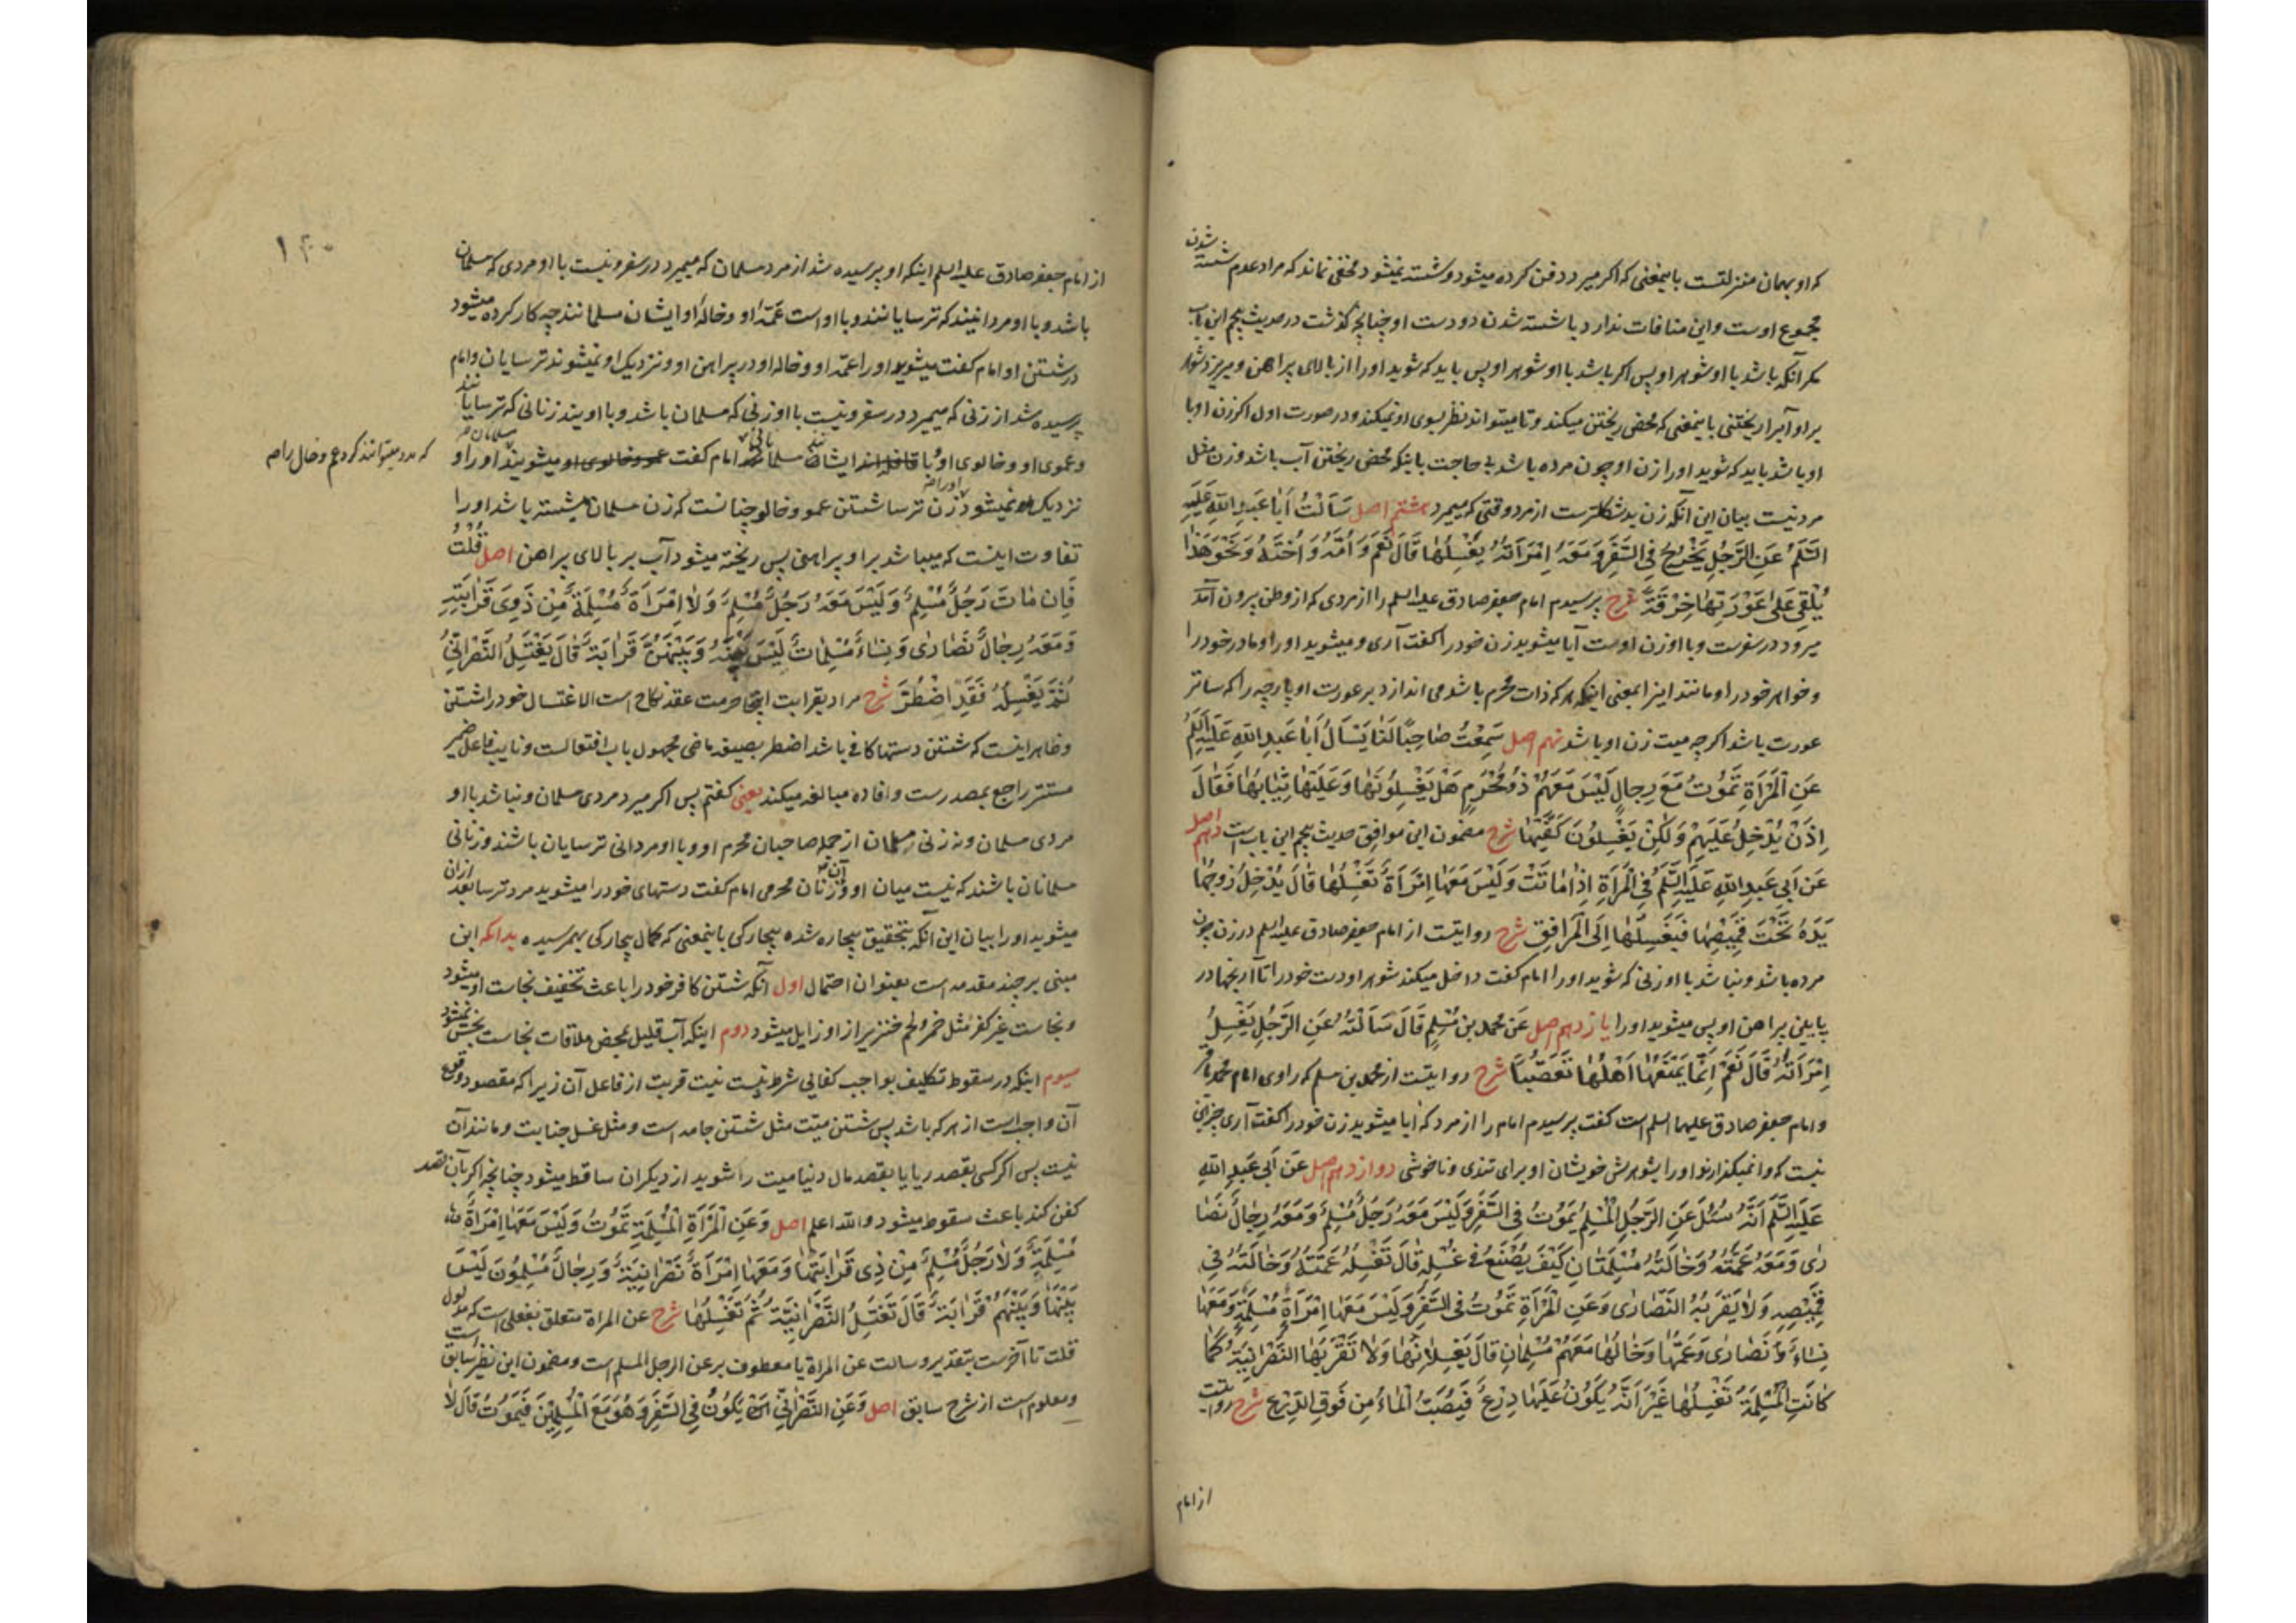 که او بهمان منزلتست باینمعنی که اکر میرد دفن کرده میشود و شسته نمیشود مخفی نماند که مراد عدم شسته شدن
مجموع اوست و این منافات ندارد با شسته شدن دو دست او چنانچه گذشت در حدیث پنجم این باب
مکر آنکه باشد با او شوهر او پس اکر باشد با او شوهر او پس باید که شوید او را از بالای پیراهن و میریزد شوهر
بر او آبرا ریختنی باینمعنی که محض ریختن میکند و تا میتواند نظر بسوی او نمیکند و در صورت اول اکر زن او با
او باشد باید که شوید او را زن او چون مرده باشد بی حاجت باینکه محض ریختن آب باشد و زن مثل
مرد نیست بیان این آنکه زن بدشکلترست از مرد وقتی که میمیرد هشتم اصل سَاَلْتُ اَبا عَبدِ اللهِ عَلَیهِ
السَّلَمُ عَنِ الرَّجُلِ یَخْرُجُ فِی السَّفَرِ وَ مَعَهُ اِمْرَاَتُهُ یُغْسِلُهٰا قَالَ نَعَم وَ اُمَّهُ وَ اُخْتَهُ وَ نَحْوَ هٰذا
یُلْقِی عَلیٰ عَوْرَتِهٰا خِرْقَةً شرح پرسیدم امام جعفر صادق علیه السلم را از مردی که از وطن بیرون آمده
میرود در سفرست و با او زن اوست آیا میشوید زن خود را کفت آری و میشوید او را و مادر خود را
و خواهر خود را و مانند اینرا بمعنی اینکه هر که ذات محرم باشد می اندازد بر عورت او پارچه را که ساتر
عورت باشد اکرچه میت زن او باشد نهم اصل سَمِعْتُ صٰاحِبًا لَنٰا یَسْاَلُ اَبٰا عَبدِ اللهِ عَلَیهِ السَّلَمُ
عَنِ الْمَرْاَةِ تَمُوْتُ مَعَ رِجٰالٍ لَیْسَ مَعَهُمْ ذُو مَحْرَمٍ هَلْ یَغْسِلُونَهٰا وَ عَلَیْهٰا ثِیٰابُهٰا فَقٰالَ
اِذَنْ یُدْخَلُ عَلَیهِمْ وَلٰکِنْ یَغْسِلُونَ کَفَّیْهٰا شرح مضمون این موافق حدیث پنجم این باب است دهم اصل
عَن اَبِی عَبدِ اللهِ عَلَیهِ السَّلَمُ فِی الْمَرْاَةِ اِذٰا مٰاتَتْ وَ لَیْسَ مَعَهٰا اِمْرَاَةٌ تَغْسِلُهٰا قَالَ یُدْخِلُ زَوجُهٰا
یَدَهُ تَحْتَ قَمِیصِهٰا فَیَغْسِلُهٰا اِلَی الْمَرٰافِقِ شرح روایتست از امام جعفر صادق علیه السلم در زن چون
مرده باشد و نباشد با او زنی که شوید او را امام کفت داخل میکند شوهر او دست خود را تا آرنجها در
پایین پیراهن او پس میشوید او را یازدهم اصل عَن محمد بن مُسْلِمٍ قَالَ سَاَلْتُهُ عَنِ الرَّجُلِ یَغْسِلُ
اِمْرَاَتَهُ قَالَ نَعَمْ اِنَّمٰا یَمْنَعُهٰا اَهْلُهٰا تَعَصُّبًا شرح روایتست از محمد بن مسلم که راوی امام محمد باقر
و امام جعفر صادق علیهما السلم است کفت پرسیدم امام را از مرد که آیا میشوید زن خود را کفت آری جز این
نیست که وا نمیکذارند او را بشوهرش خویشان او برای تندی و ناخوشی دوازدهم اصل عَن اَبِی عَبدِ اللهِ
عَلَیهِ السَّلَمُ اَنَّهُ سُئِلَ عَنِ الرَّجُلِ الْمُسْلِمِ یَمُوْتُ فِی السَّفَرِ وَ لَیْسَ مَعَهُ رَجُلٌ مُسْلِمٌ وَ مَعَهُ رِجٰالٌ نَصٰا
رٰی وَ مَعَهُ عَمَّتُهُ وَ خٰالَتُهُ مُسْلِمَتٰانِ کَیْفَ یُصْنَعُ فی غُسْلِهِ قَالَ تَغْسِلُهُ عَمَّتُهُ وَ خٰالَتُهُ فِی
قَمِیْصِهِ وَ لاٰ یَقْرَبُهُ النَّصٰارٰی وَ عَنِ الْمَرْاَةِ تَمُوْتُ فِی السَّفَرِ وَ لَیْسَ مَعَهٰا اِمْرَاَةٌ مُسْلِمَةٌ وَ مَعَهٰا
نِسٰاءٌ نَصٰارٰی وَ عَمُّهٰا وَ خٰالُهٰا مَعَهُمْ مُسْلِمٰانِ قَالَ یَغْسِلاٰنِهٰا وَ لاٰ تَقْرَبُهٰا النَّصْرٰانِیَّةُ کَمٰا
کٰانَتِ الْمُسْلِمَةُ تَغْسِلُهٰا غَیْرَ اَنَّهُ یَکُوْنُ عَلَیْهٰا دِرْعٌ فَیُصَبُّ الْمٰاءُ مِن فَوقِ الدِّرْعِ شرح روایتست
از امام
۱۴۰
از امام جعفر صادق علیه السلم اینکه او پرسیده شد از مرد مسلمان که میمیرد در سفر و نیست با او مردی که مسلمان
باشد و با او مردانیند که ترسایانند و با اوست عمّهٔ او و خالهٔ او ایشان مسلمانند چه کار کرده میشود
در شستن او امام کفت میشوید او را عمّهٔ او و خالهٔ او در پیراهن او و نزدیک او نمیشوند ترسایان و امام
پرسیده شد از زنی که میمیرد در سفر و نیست با او زنی که مسلمان باشد و با اویند زنانی که ترسایانند
و عموی او و خالوی او با ایشان مسلمانانند امام کفت میشویند او را و
که مدد میتوانند کرد عم و خال را
نزدیک نمیشود او را زن ترسا شستن عمو و خالو چنانست که زن مسلمان شسته باشد او را
تفاوت اینست که میباشد بر او پیراهنی پس ریخته میشود آب بر بالای پیراهن اصل قُلْتُ
فَاِن مٰاتَ رَجُلٌ مُسْلِمٌ وَ لَیْسَ مَعَهُ رَجُلٌ مُسْلِمٌ وَ لاٰ اِمْرَاَةٌ مُسْلِمَةٌ مِنْ ذَوِی قَرٰابَتِهِ
وَ مَعَهُ رِجٰالٌ نَصٰارٰی وَ نِسٰاءٌ مُسْلِمٰاتٌ لَیْسَ بَیْنَهُ وَ بَیْنَهُنَّ قَرٰابَةٌ قٰالَ یَغْتَسِلُ النَّصْرٰانِیُّ
ثُمَّ یَغْسِلُهُ فَقَدِ اضْطُرَّ شرح مراد بقرابت اینجا حرمت عقد نکاح است الاغتسال خود را شستن
و ظاهر اینست که شستن دستها کافی باشد اضطر بصیغه ماضی مجهول باب افتعالست و نایب فاعل ضمیر
مستتر راجع بمصدرست و افاده مبالغه میکند یعنی کفتم پس اکر میرد مردی مسلمان و نباشد با او
مردی مسلمان و نه زنی مسلمان از جمله صاحبان محرم او و با او مردانی ترسایان باشند و زنانی
مسلمانان باشند که نیست میان او و آن زنان محرمی امام کفت دستهای خود را میشوید مرد ترسا بعد ازان
میشوید او را بیان این آنکه بتحقیق بیچاره شده بیچارکی باینمعنی که کمال بیچارکی بهمرسیده بدانکه این
مبنی بر چند مقدمه است بعنوان احتمال اول آنکه شستن کافر خود را باعث تخفیف نجاست او میشود
و نجاست غیر کفر مثل خمر و لحم خنزیر از او زایل میشود دوم اینکه آب قلیل بمحض ملاقات نجاست نجس نمیشود
سیوم اینکه در سقوط تکلیف بواجب کفایی شرط نیست نیت قربت از فاعل آن زیرا که مقصود وقوع
آن واجبست از هر که باشد پس شستن میّت مثل شستن جامه است و مثل غسل جنابت و مانند آن
نیست پس اکر کسی بقصد ریا یا بقصد مال دنیا میت را شوید از دیکران ساقط میشود چنانچه اکر بآن قصد
کفن کند باعث سقوط میشود والله اعلم اصل وَ عَنِ الْمَرْاَةِ الْمُسْلِمَةِ تَمُوْتُ وَ لَیْسَ مَعَهٰا اِمْرَاَةٌ
مُسْلِمَةٌ وَ لاٰ رَجُلٌ مُسْلِمٌ مِنْ ذِی قَرٰابَتِهٰا وَ مَعَهٰا اِمْرَاَةٌ نَصْرٰانِیَّةٌ وَ رِجٰالٌ مُسْلِمُونَ لَیْسَ
بَیْنَهٰا وَ بَیْنَهُمْ قَرٰابَةٌ قَالَ تَغْتَسِلُ النَّصْرٰانِیَّةُ ثُمَّ تَغْسِلُهٰا شرح عن المراة متعلق بفعلی است که مدلول
قلت تا آخرست بتقدیر و سالت عن المراة یا معطوف بر عن الرجل المسلم است و مضمون این نظیر سابق است
و معلوم است از شرح سابق اصل وَ عَنِ النَّصْرٰانِیِّ یَکُوْنُ فِی السَّفَرِ وَ هُوَ مَعَ الْمُسْلِمِیْنَ فَیَمُوْتُ قَالَ لاٰ